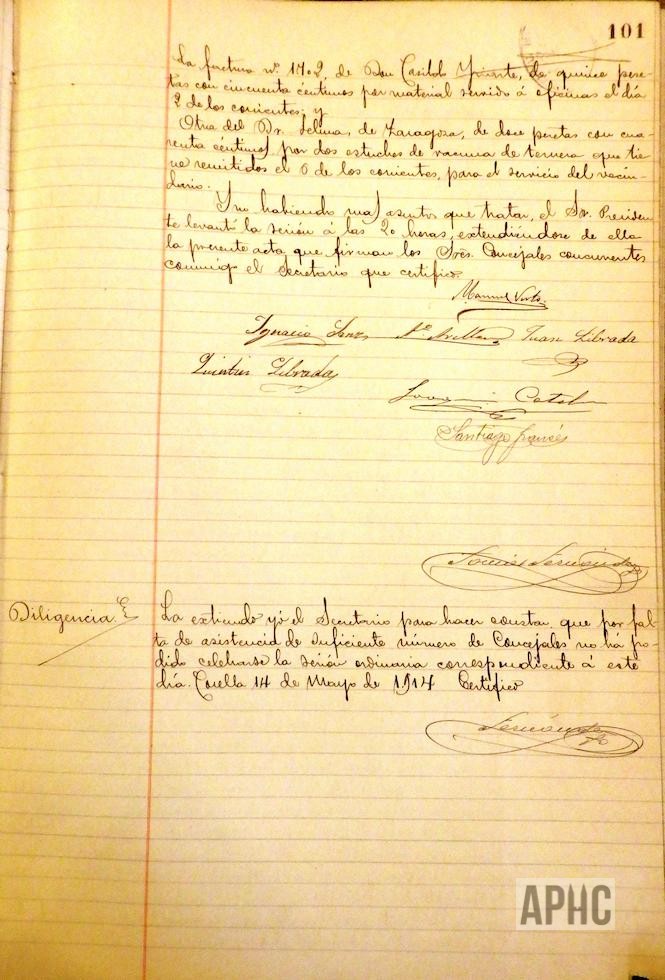 101
La factura nº 1702, de Don Casildo de quince pese-
tas con cincuenta céntimos por material servido á oficinas el día
2 de los corrientes; y
Otra del Dr. Selma, de Zaragoza, de doce pesetas con cua-
renta céntimos por dos estuches de vacuna de ternera que tie-
ne remitidos el 6 de los corrientes, para el servicio del vecin-
dario.
Y no habiendo mas asuntos que tratar, el Sr. Presiden-
te levantó la sesión á las 20 horas, extendiéndose de ella
la presente acta que firman los Sres. Concejales concurrentes
conmigo el Secretario que certifico.
Manuel
Ignacio Sanz Juan Librada
Quintin Librada
Joaquin Catalan
Santiago Francés
Tomás Fernández
Diligencia.
La extiendo yó el Secretario para hacer constar que por fal-
ta de asistencia de suficiente número de Concejales no há po-
dido celebrarse la sesión ordinaria correspondiente á este
día. Corella 14 de Mayo de 1914 Certifico
Fernández
APHC